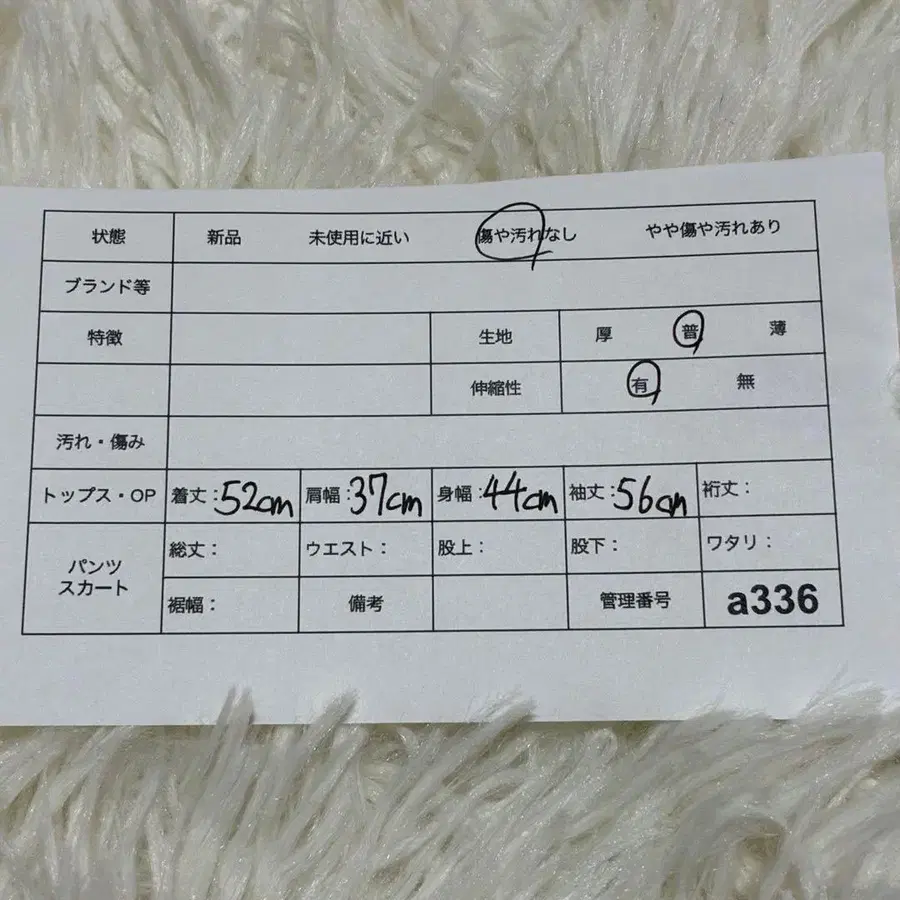 状態 新品 未使用に近い 傷や汚れなし やや傷や汚れあり
ブランド等
特徴 生地 厚 普 薄
伸縮性 有 無
汚れ・傷み
トップス・OP 着丈:52cm 肩幅:37cm 身幅:44cm 袖丈:56cm 裄丈:
パンツ
スカート
総丈: ウエスト: 股上: 股下: ワタリ:
裾幅: 備考 管理番号 a336